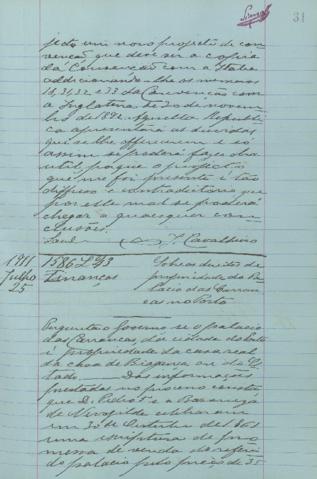 31
jecto um novo projecto de con-
venção que deve ser a copia
da Convenção com a Italia
addicionando-lhe os numeros
31, 32 e 33 da Convenção com
a Inglaterra de 20 de novem-
bro de 1892. Aquella Republi-
ca apresentará as duvidas
que se lhe offerecerem e só
assim se poderá fazer obra
util, porque o projecto
que me foi presente é tão
diffuso e contradictorio que
por elle mal se poderá
chegar a quaesquer con-
clusões.
J. Cavalheiro
1911
Julho
25
1586 L 43
Finanças
Sobre a direitos de
propriedade do Pa-
lacio das Carran-
cas no Porto
Pergunta o Governo se o palacio
das Carrancas, da cidade do Porto
é propriedade da casa real
da casa de Bragança ou do Es-
tado. Das informações
prestadas no processo consta
que D. Pedro 5º e a Baroneza
de Nevogilde celebraram
em 30 de Outubro de 1861
uma escriptura de pro-
messa de venda do referi-
do palacio pelo preço de 35